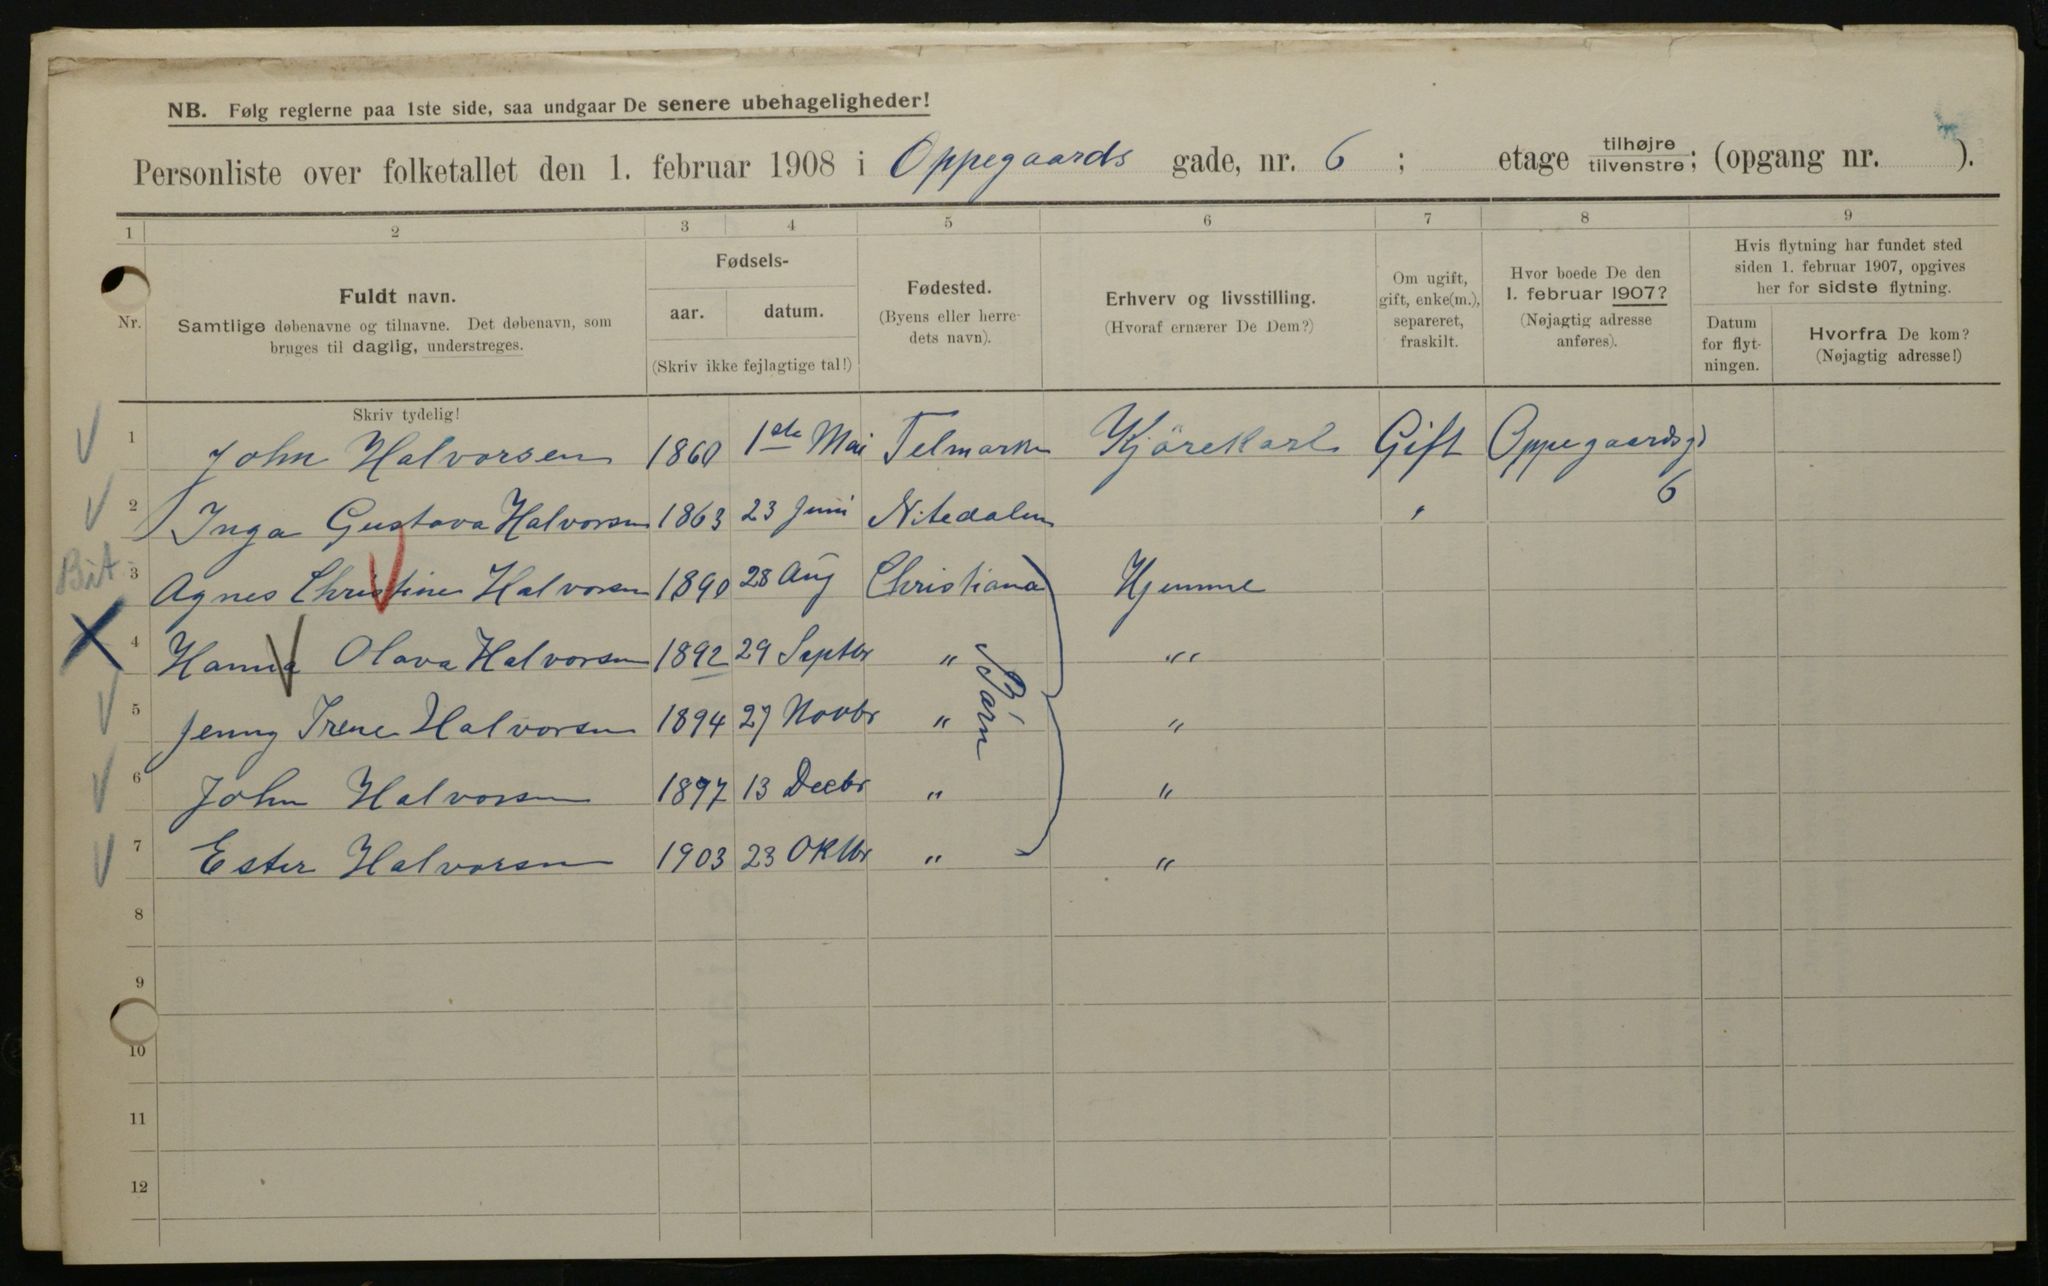 NB. Følg reglerne paa 1ste side, saa undgaar De senere ubehageligheder!
Personliste over folketallet den 1. februar 1908 i Oppegaards gade, nr. 6 ; etage tilhøjre / tilvenstre; (opgang nr. ).
1 2 3 4 5 6 7 8 9
Nr.
Fuldt navn.
Samtlige døbenavne og tilnavne. Det døbenavn, som
bruges til daglig, understreges.
Fødsels-
aar. datum.
(Skriv ikke fejlagtige tal!)
Fødested.
(Byens eller herre-
dets navn).
Erhverv og livsstilling.
(Hvoraf ernærer De Dem?)
Om ugift,
gift, enke(m.),
separeret,
fraskilt.
Hvor boede De den
1. februar 1907?
(Nøjagtig adresse
anføres).
Hvis flytning har fundet sted
siden 1. februar 1907, opgives
her for sidste flytning.
Datum
for flyt-
ningen.
Hvorfra De kom?
(Nøjagtig adresse!)
Skriv tydelig!
1 John Halvorsen 1860 1ste Mai Telmarken Kjörekarl Gift Oppegaardsgd
6
2 Inga Gustava Halvorsen 1863 23 Juni Nitedalen "
3 Agnes Christine Halvorsen 1890 28 Aug Christiana Hjemme
4 Hanna Olava Halvorsen 1892 29 Septbr " "
5 Jenny Irene Halvorsen 1894 27 Novbr " "
6 John Halvorsen 1897 13 Decbr " "
7 Ester Halvorsen 1903 23 Oktbr " "
Börn
8
9
10
11
12